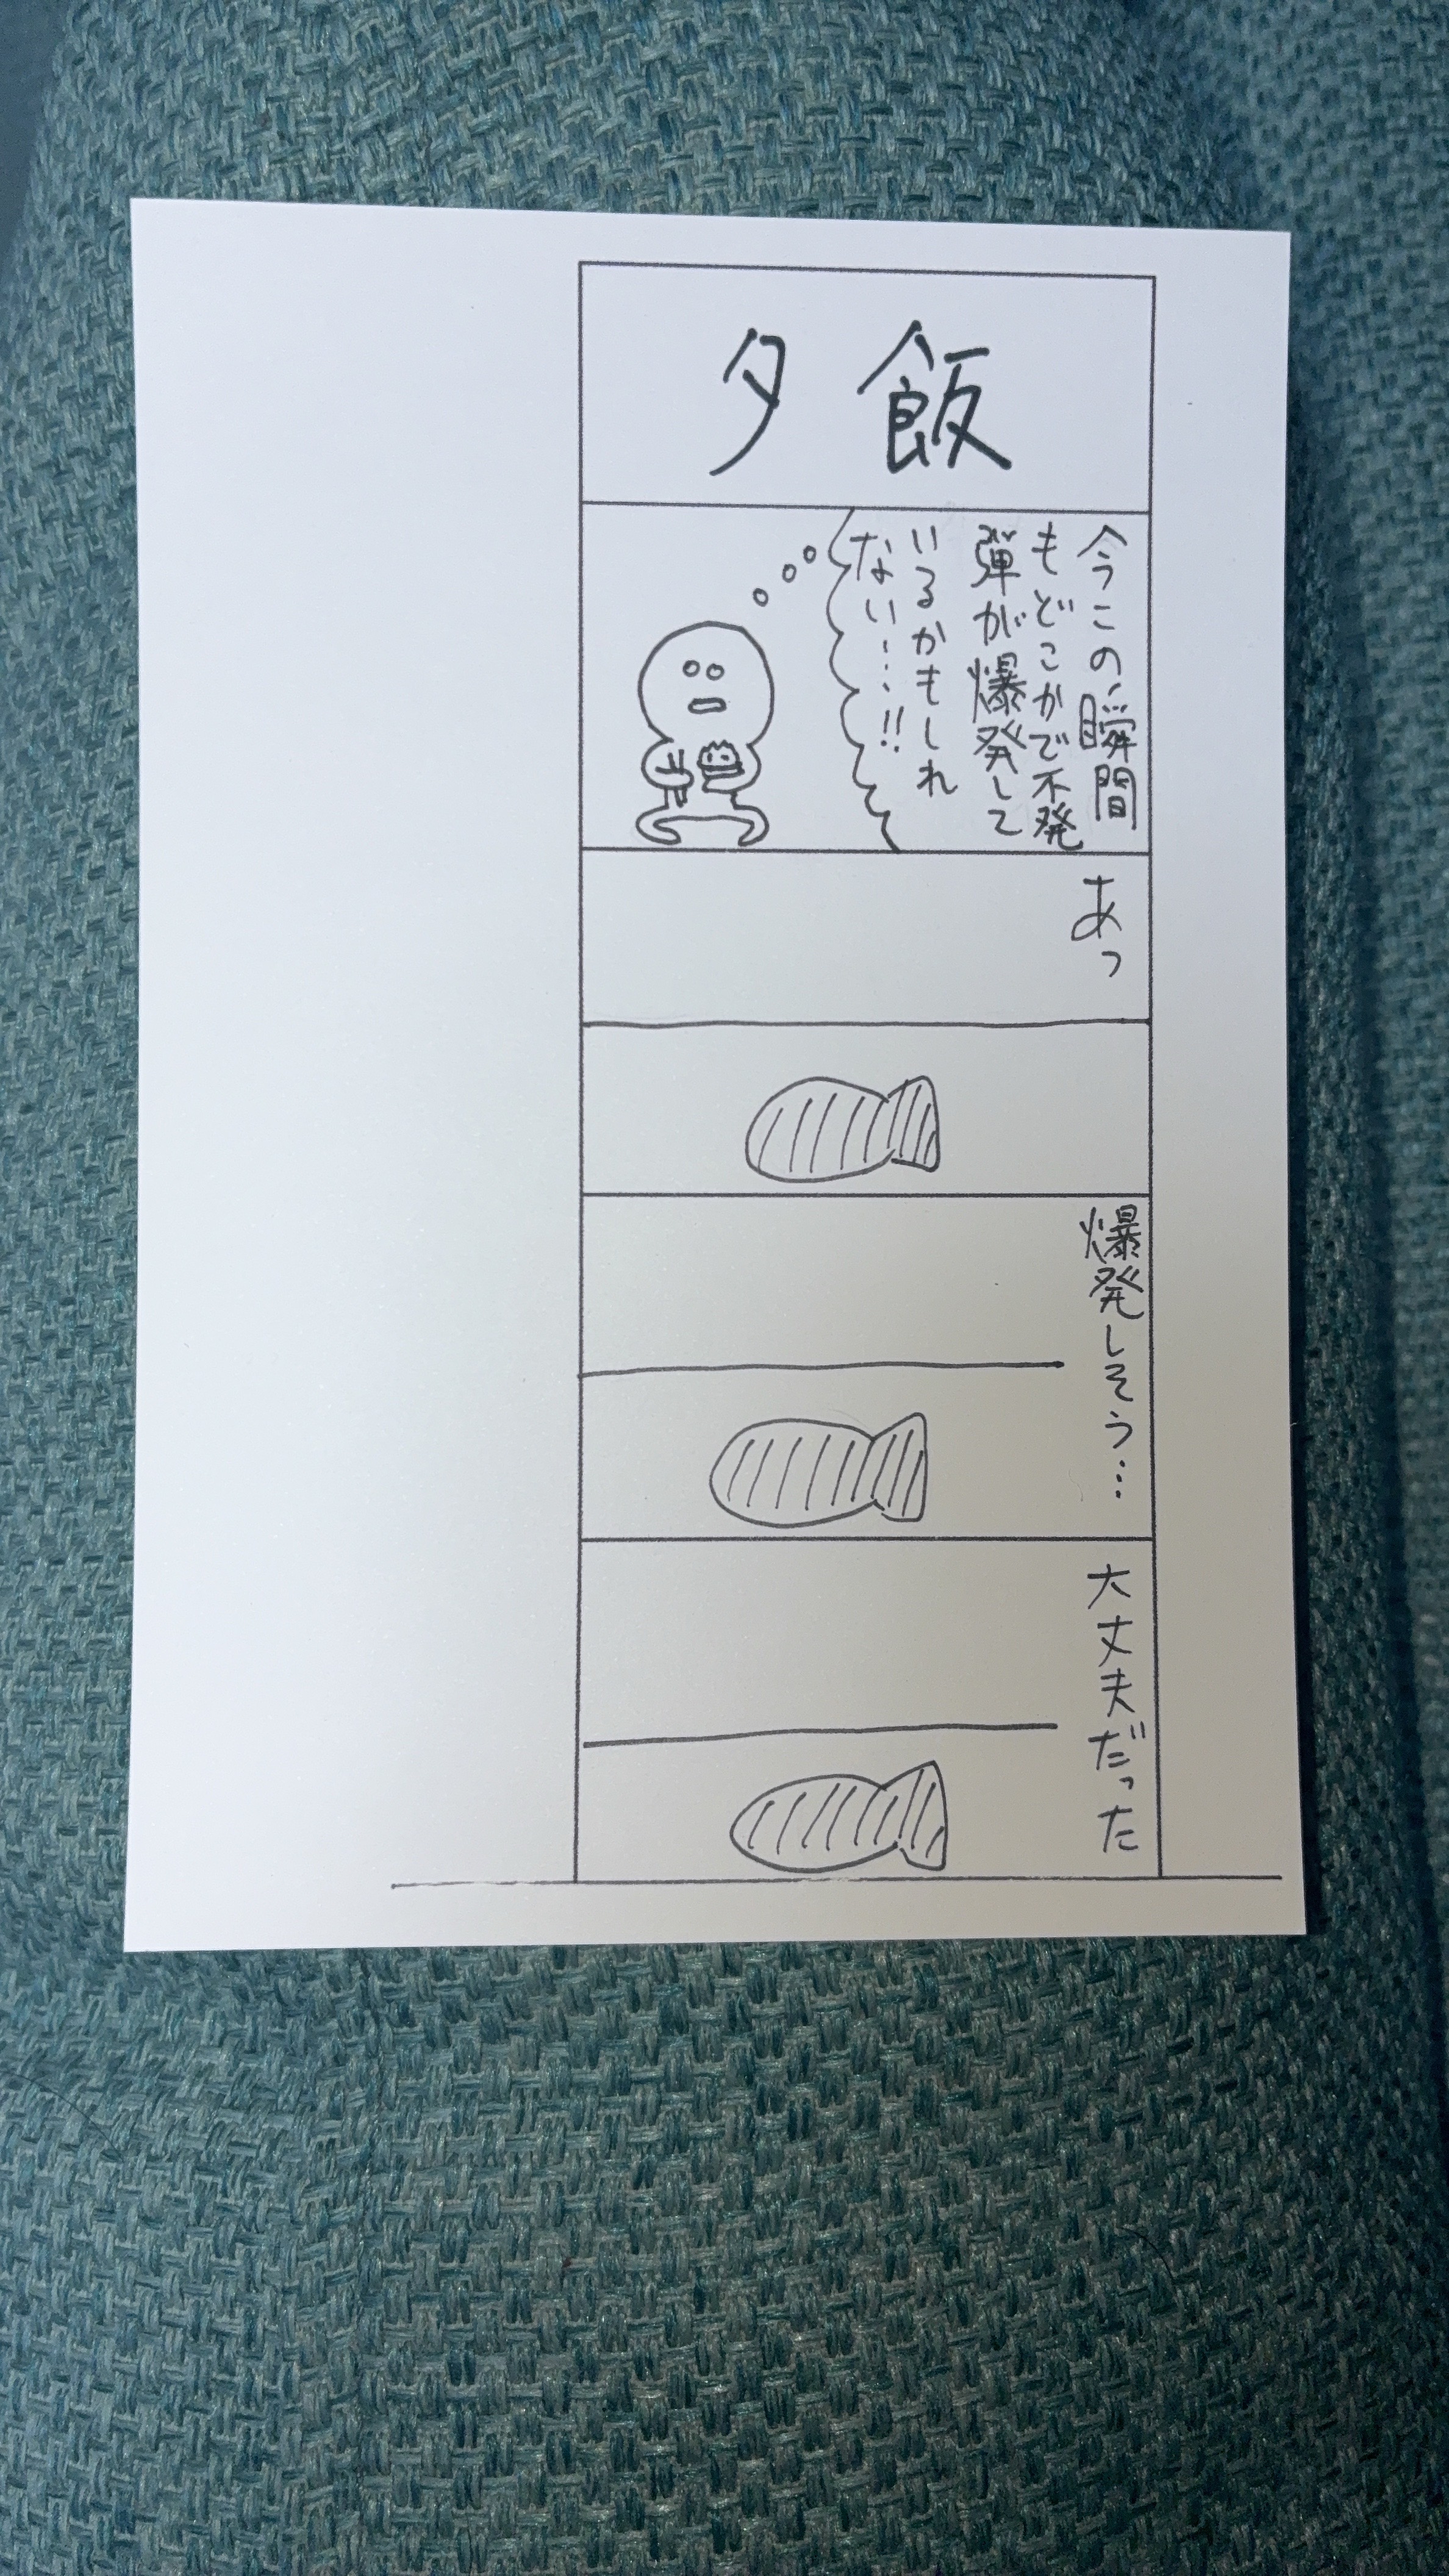 夕飯
今この瞬間
もどこかで不発
弾が爆発して
いるかもしれ
ない…!!
あっ
爆発しそう…
大丈夫だった